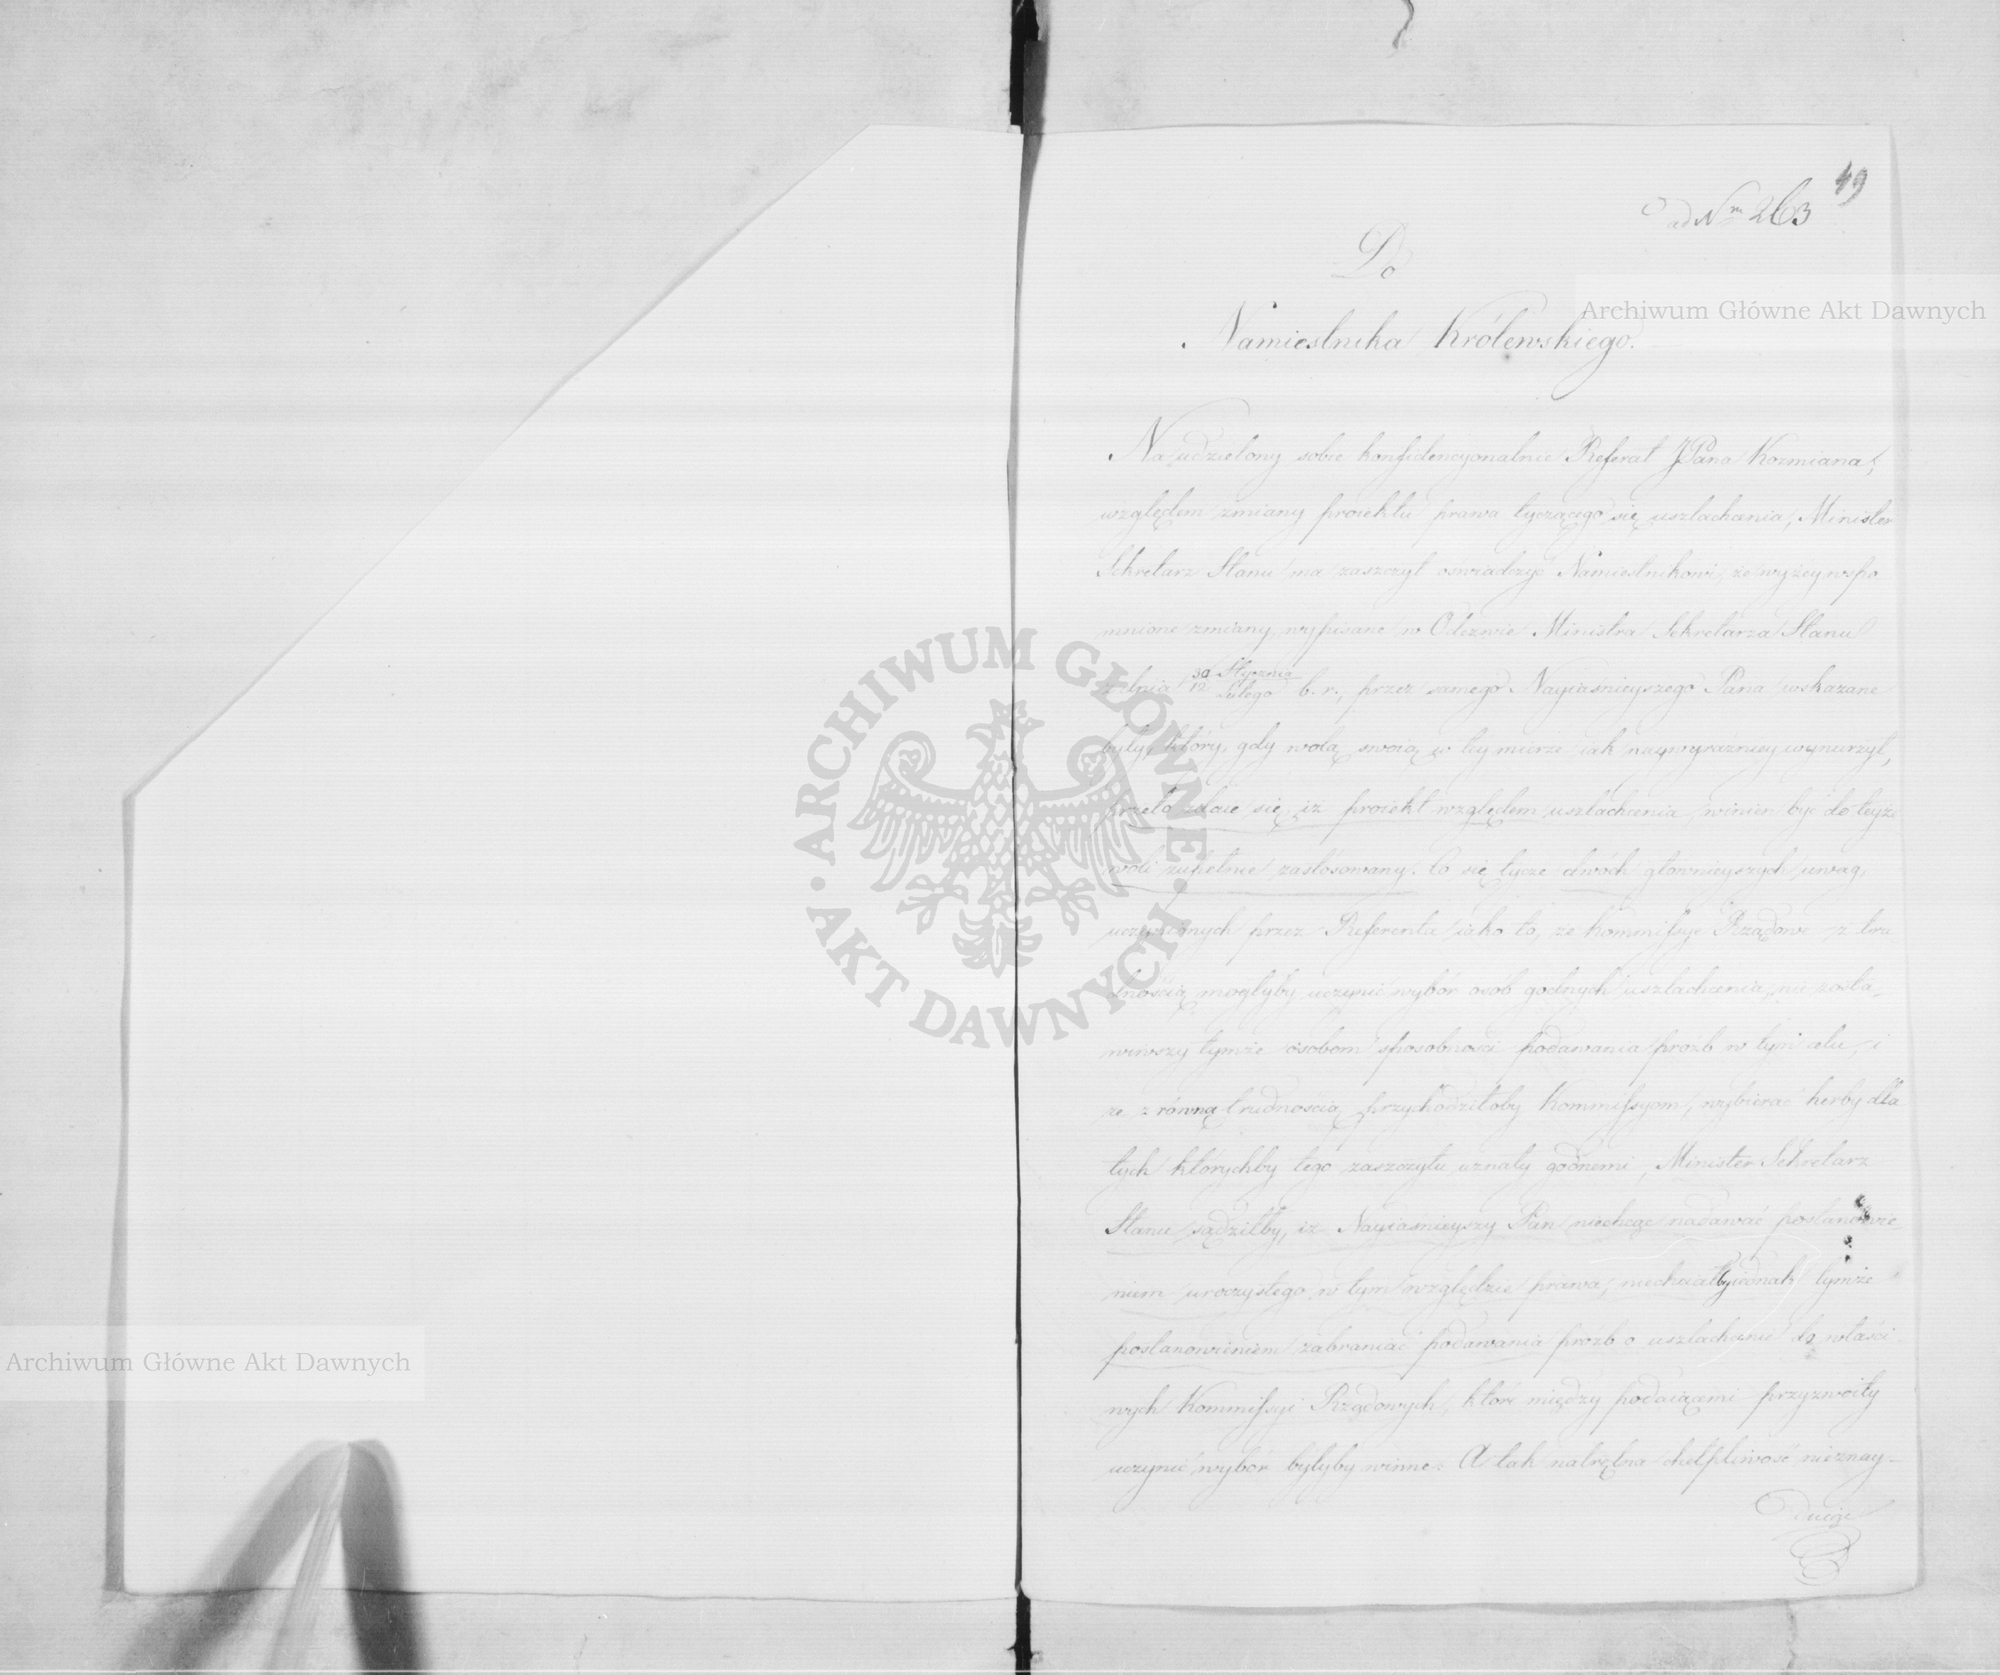 49
ad Nm 263
Do
Namiestnika Królewskiego.
Na udzielony sobie konfidencyonalnie Referat JPana Kozmiana,
względem zmiany proiektu prawa tyczącego się uszlachcenia, Minister
Sekretarz Stanu ma zaszczyt oświadczyć Namiestnikowi, że wyżey wspo
mnione zmiany wypisane w Odezwie Ministra Sekretarza Stanu
z dnia 30 Stycznia / 12 Lutego b. r., przez samego Nayiaśnieyszego Pana wskazane
były, który, gdy wolą swoią w tey mierze iak naywyrazniey wynurzył,
przeto zdaie się, iż proiekt względem uszlachcenia winien być do teyże
woli zupełnie zastosowany. Co się tycze dwóch głównieyszych uwag,
uczynionych przez Referenta iako to, ze Kommissye Rządowe z tru
dnością mogłyby uczynić wybór osób godnych uszlachcenia, nie zosta„
wiwszy tymże osobom sposobności podawania prozb w tym celu, i
ze z równą trudnością przychodziłoby Kommissyom, wybierać herby dla
tych którychby tego zaszczytu uznały godnemi, Minister Sekretarz
Stanu sądziłby, iz Nayiaśnieyszy Pan niechcąc nadawać postanowie
niem uroczystego w tym względzie prawa, niechciałby iednak tymże
postanowieniem zabraniać podawania prozb o uszlachcenie do właści
wych Kommissyi Rządowych, które między podaiącemi przyzwoity
uczynić wybór byłyby winne: A tak natrętna chełpliwość nieznay-
duiąc
Archiwum Główne Akt Dawnych
Archiwum Główne Akt Dawnych
ARCHIWUM GŁÓWNE · AKT DAWNYCH ·